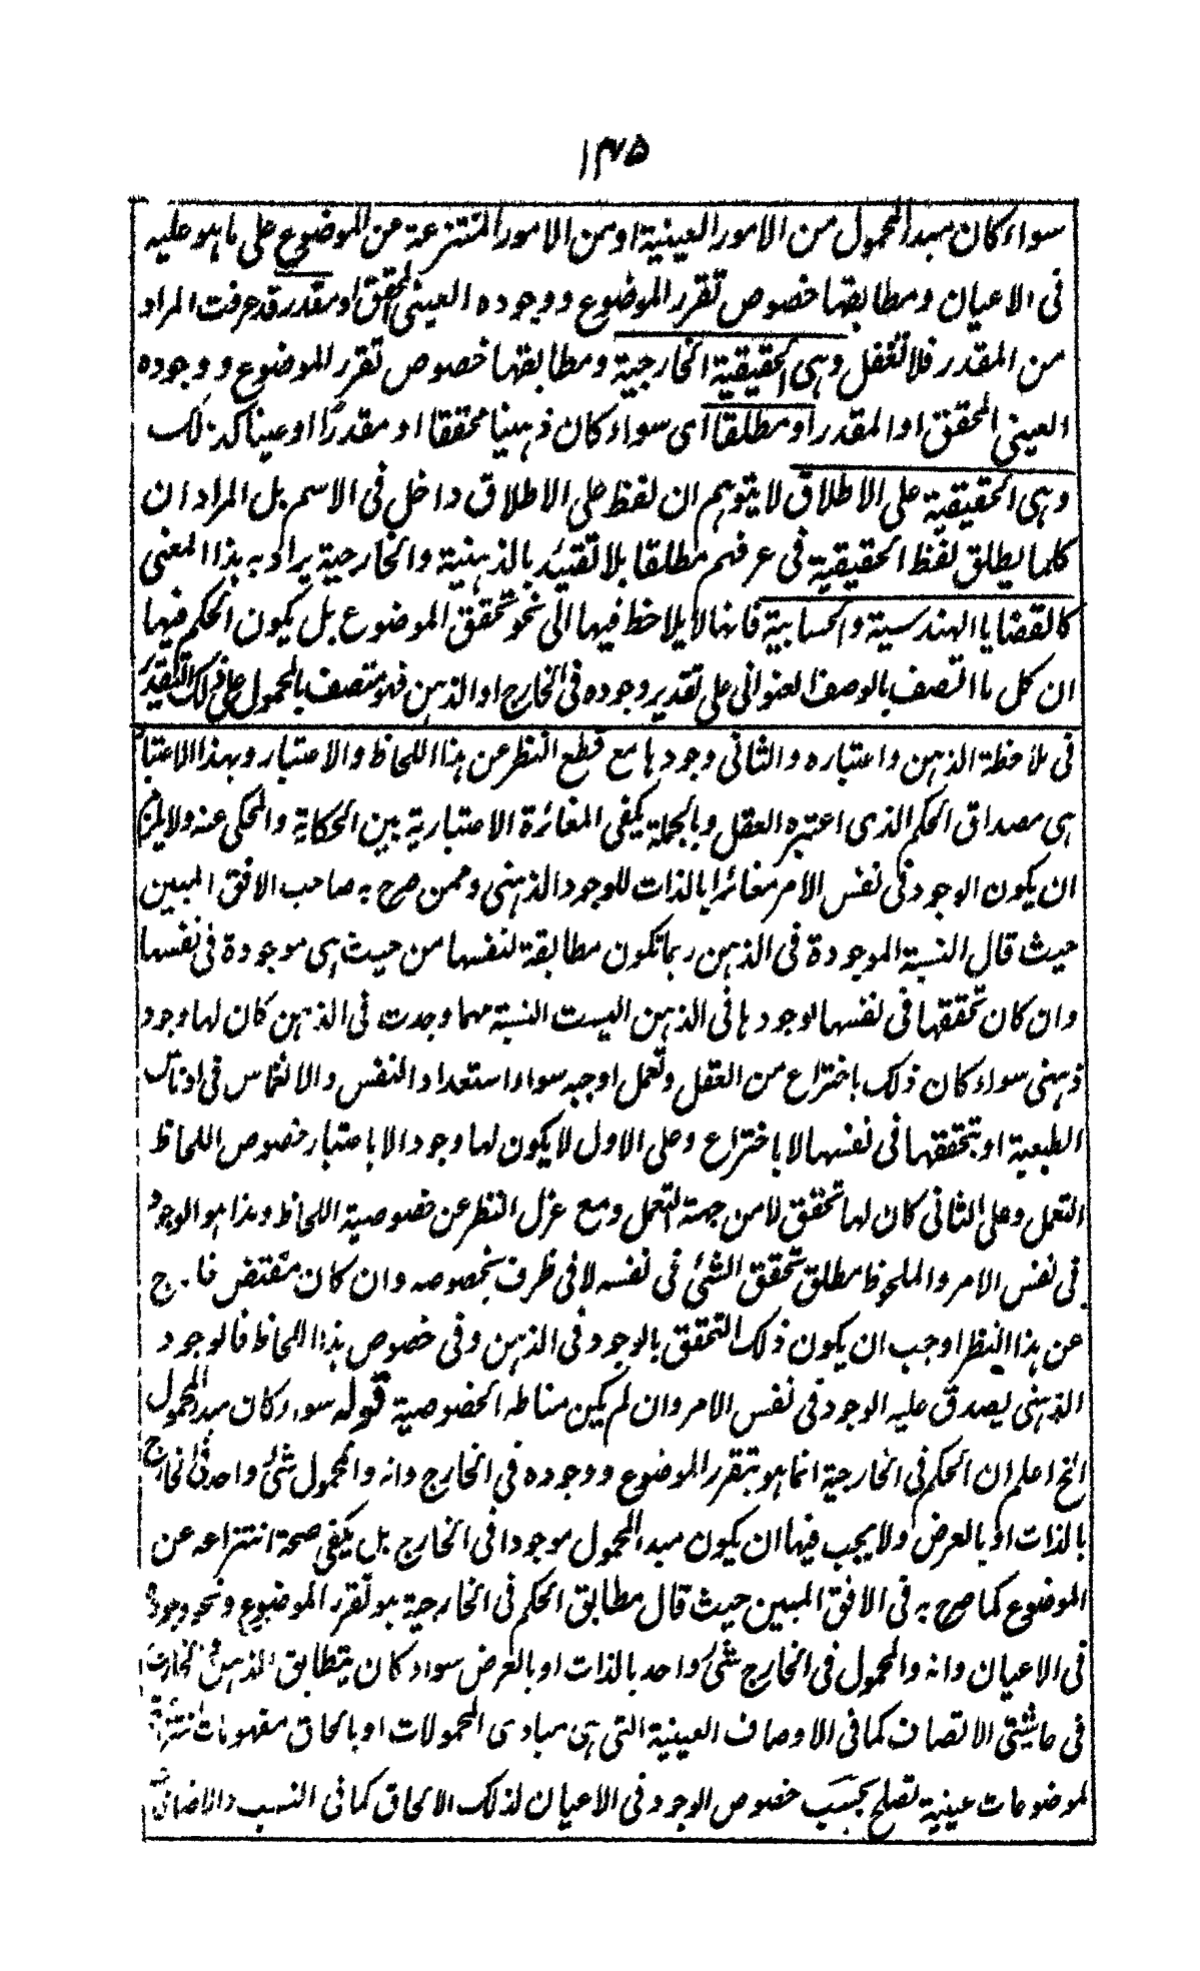 ١٣٥
سواء كان مبدأ المحمول من الامور العينية او من الامور المنتزعة عن الموضوع على ما هو عليه
فى الاعيان ومطابقها خصوص تقرر الموضوع ووجوده العينى المحقق او مقدر قد عرفت المراد
من المقدر فلا تغفل وهى الحقيقية الخارجية ومطابقها خصوص تقرر الموضوع ووجوده
العينى المحقق او المقدر او مطلقا اى سواء كان ذهنيا محققا او مقدرًا او عينا كذلك
وهى الحقيقية على الاطلاق لا يتوهم ان لفظ على الاطلاق داخل فى الاسم بل المراد ان
كلما يطلق لفظ الحقيقية فى عرفهم مطلقا بلا تقييد بالذهنية والخارجية يراد به هذا المعنى
كالقضايا الهندسية والحسابية فانها لا يلاحظ فيها الى نحو تحقق الموضوع بل يكون الحكم فيها
ان كل ما اتصف بالوصف العنوانى على تقدير وجوده فى الخارج او الذهن فهو متصف بالمحمول على ذلك التقدير
فى ملاحظة الذهن واعتباره والثانى وجودها مع قطع النظر عن هذا اللحاظ والاعتبار وبهذا الاعتبار
هى مصداق الحكم الذى اعتبره العقل وبالجملة يكفى المغائرة الاعتبارية بين الحكاية والمحكى عنه ولا يلزم
ان يكون الوجود فى نفس الامر مغائرا بالذات للوجود الذهنى وممن صرح به صاحب الافق المبين
حيث قال النسبة الموجودة فى الذهن ربما تكون مطابقة لنفسها من حيث هى موجودة فى نفسها
وان كان تحققها فى نفسها لوجودها فى الذهن اليست النسبة مهما وجدت فى الذهن كان لها وجود
ذهنى سواء كان ذلك باختراع من العقل وتعمل اوجبه سواء استعداد النفس والانغماس فى ادناس
الطبعية او بتحققها فى نفسها لا باختراع وعلى الاول لا يكون لها وجود الا باعتبار خصوص اللحاظ
التعمل وعلى الثانى كان لها تحقق لا من جهة التعمل ومع عزل النظر عن خصوصية اللحاظ وهذا هو الوجود
فى نفس الامر والملحوظ مطلق تحقق الشئ فى نفسه لا فى ظرف بخصوصه وان كان مقتض خارج
عن هذا النظر اوجب ان يكون ذلك التحقق بالوجود فى الذهن وفى خصوص هذا اللحاظ فالوجود
الذهنى يصدق عليه الوجود فى نفس الامر وان لم يكن مناطه الخصوصية قوله سواء كان مبدأ المحمول
الخ اعلم ان الحكم فى الخارجية انما هو بتقرر الموضوع ووجوده فى الخارج وانه والمحمول شئ واحد فى الخارج
بالذات او بالعرض ولا يجب فيها ان يكون مبدأ المحمول موجودا فى الخارج بل يكفى صحة انتزاعه عن
الموضوع كما صرح به فى الافق المبين حيث قال مطابق الحكم فى الخارجية هو تقرر الموضوع ونحو وجوده
فى الاعيان وانه والمحمول فى الخارج شئ واحد بالذات او بالعرض سواء كان بتطابق الذهن والخارج
فى حاشيتى الاتصاف كما فى الاوصاف العينية التى هى مبادى المحمولات او بالحاق مفهومات منتزعة
لموضوعات عينية تصلح بحسب خصوص الوجود فى الاعيان لذلك الالحاق كما فى النسب والاضافات